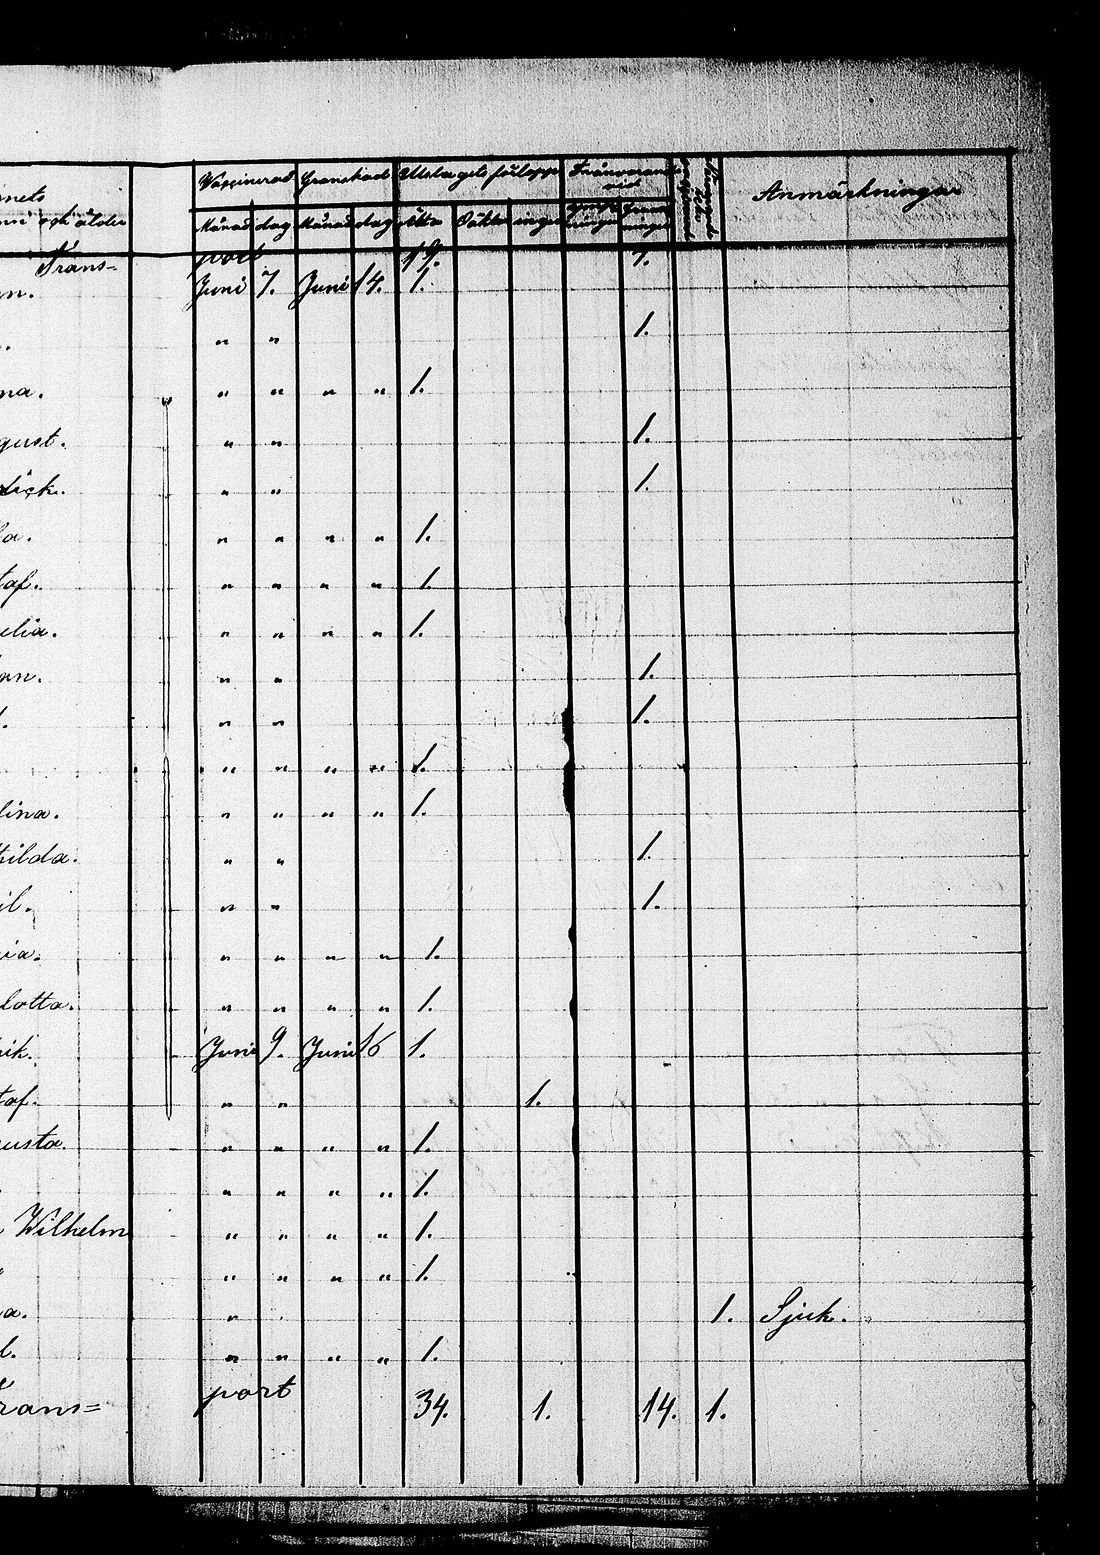 Vaccinerad Granskad Utslagets förlopp Frånvarande vid
nets Anmärkningar
och ålder Månad dag Månad dag Äkta Oäkta inga
Trans= port 19. 7.
n. Juni 7. Juni 14. 1.
. " " 1.
na. " " " " 1.
gust. " " 1.
rick. " " 1.
la. " " " " 1.
taf. " " " " 1.
elia. " " " " 1.
an. " " 1.
l. " " 1.
" " " " 1.
lina. " " " " 1.
thilda. " " 1.
il. " " 1.
ria. " " " " 1.
lotta. " " " " 1.
rik. Juni 9. Juni 16 1.
taf. " " 1.
usta. " " " " 1.
. " " " " 1.
Wilhelm " " " " 1.
" " " " 1.
a. " 1. Sjuk.
l. " " " " 1.
Trans= port 34. 1. 14. 1.